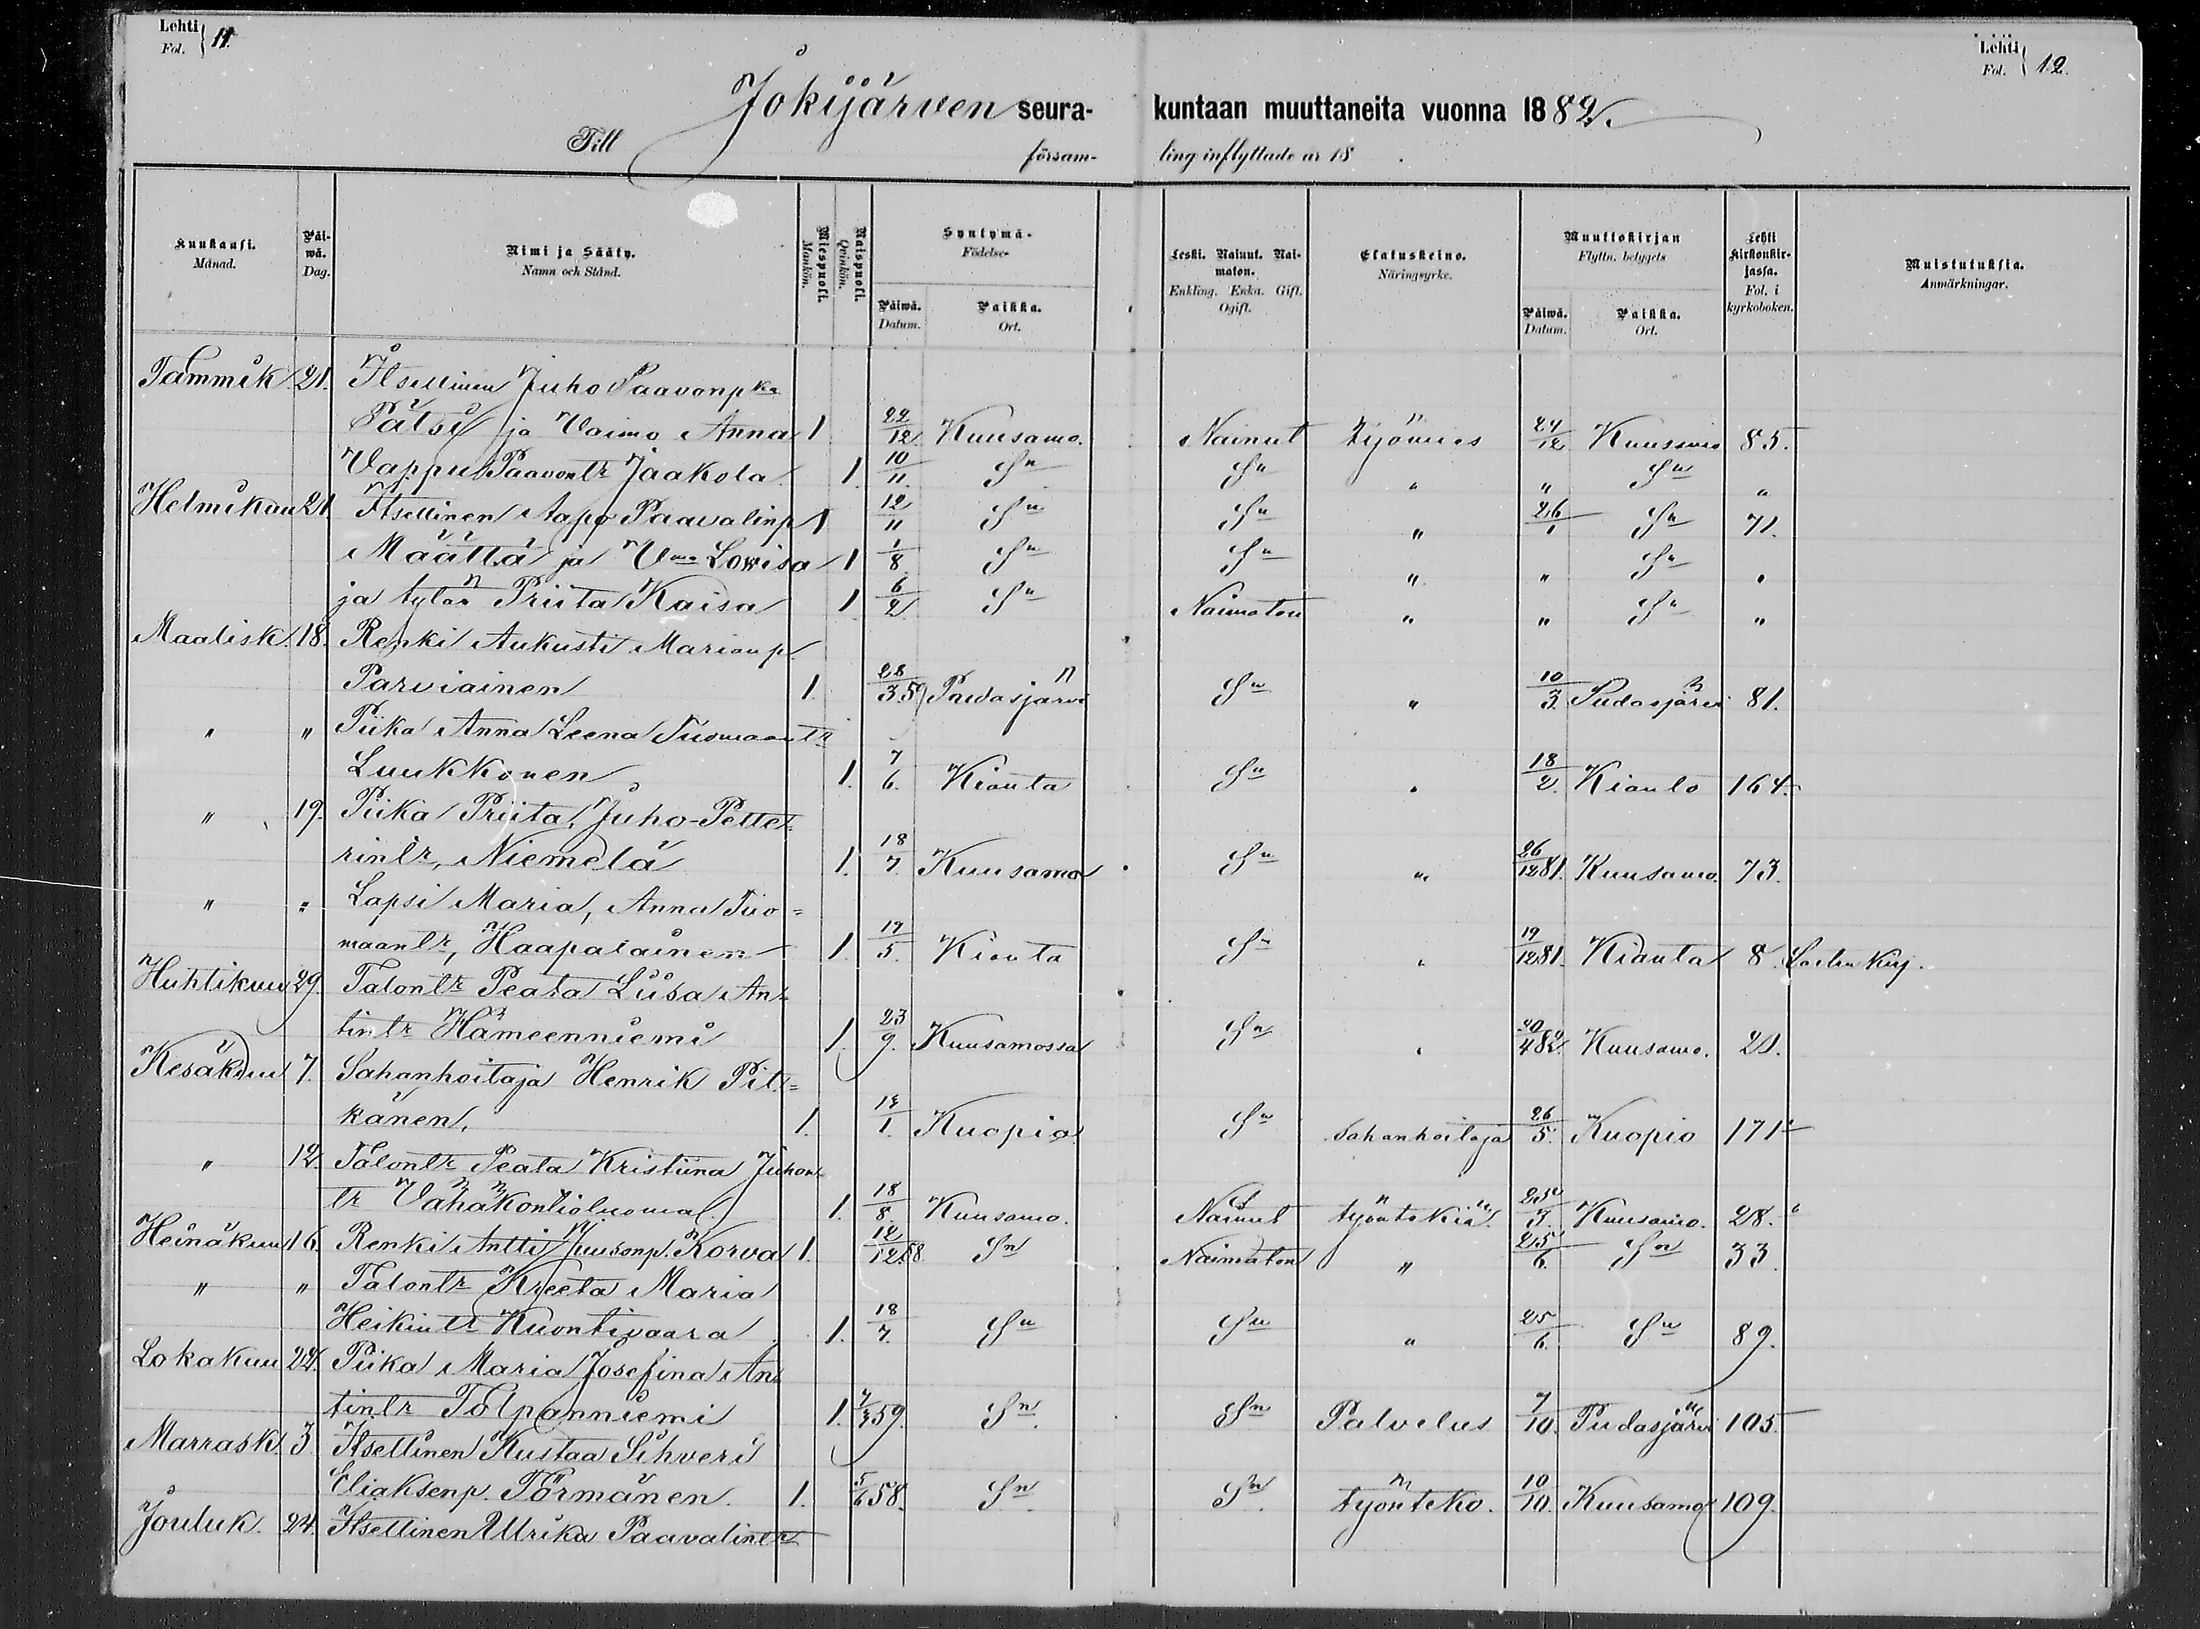 Lehti Fol. 11.
Lehti Fol. 12.
Jokijärven seura- kuntaan muuttaneita vuonna 1882.
Till församling inflyttade år 18 .
Kuukausi. Månad.
Päiwä. Dag.
Nimi ja Sääty. Namn och Stånd.
Miespuoli. Mankön.
Naispuoli. Qvinkön.
Syntymä- Födelse-
Päiwä. Datum.
Paikka. Ort.
Leski. Nainut. Naimaton. Enkling. Enka. Gift. Ogift.
Elatuskeino. Näringsyrke.
Muuttokirjan Flyttn. betygets
Päiwä. Datum.
Paikka. Ort.
Lehti Kirkonkirjassa. Fol. i kyrkoboken.
Muistutuksia. Anmärkningar.
Tammik 21. Itsellinen Juho Paavonpka
Pätsi ja Vaimo Anna 1 22/12 Kuusamo. Nainut työmies 24/12 Kuusamo 85.
Vappu Paavontr Jaakola 1. 10/11. Sn Sn " " Sn "
Helmikuu 21. Itsellinen Aapo Paavalinp 1 12/11 Sn Sn " 26/1 Sn 71.
Määttä ja Vmo Lowisa 1 1/8. Sn Sn " " Sn "
ja tytär Priita Kaisa 1. 6/2. Sn Naimaton " " Sn "
Maalisk. 18. Renki Aukusti Marianp.
Parviainen 1. 28/3 59 Pudasjärvi Sn " 10/3. Pudasjärvi 81.
" " Piika Anna Leena Tuomaantr
Luukkonen 1. 7/6. Kianta Sn " 18/2. Kianto 164.
" 19. Piika Priita, Juho-Pette-
rintr, Niemelä 1. 18/7. Kuusamo Sn " 26/12 81. Kuusamo. 73.
" " Lapsi Maria, Anna Tuo=
maantr, Haapalainen 1. 17/5. Kianta Sn " 19/12 81. Kianta 8. Lasten Kirj.
Huhtikuu 29. Talontr Peata Liisa An-
tintr Hämeenniemi 1. 23/9. Kuusamossa Sn " 20/4 82. Kuusamo. 21.
Kesäkuu 7. Sahanhoitaja Henrik Pit=
känen, 1. /1. Kuopio Sn Sahanhoitaja 26/5. Kuopio 171
" 12. Talontr Peata Kristiina Juhon-
tr Vähäkontioluoma 1. 18/8 Kuusamo. Nainut työntekiä. 25/5. Kuusamo. 28.
Heinäkuu 16. Renki Antti Juusonp. Korva 1. 12/12 58. Sn Naimaton " 25/6. Sn 33.
" " Talontr Kreeta Maria
Heikintr Kuontivaara 1. 18/7. Sn Sn " 25/6. Sn 89.
Lokakuu 22. Piika Maria Josefina An-
tintr Tolpanniemi 1. 7/3 59. Sn Sn Palvelus 7/10. Pudasjärvi 105.
Marrask. 3. Itsellinen Kustaa Sihveri
Eliaksenp. Törmänen. 1. 5/6 58. Sn Sn työnteko. 10/10. Kuusamo 109.
Jouluk. 24. Itsellinen Ulrika Paavalintr